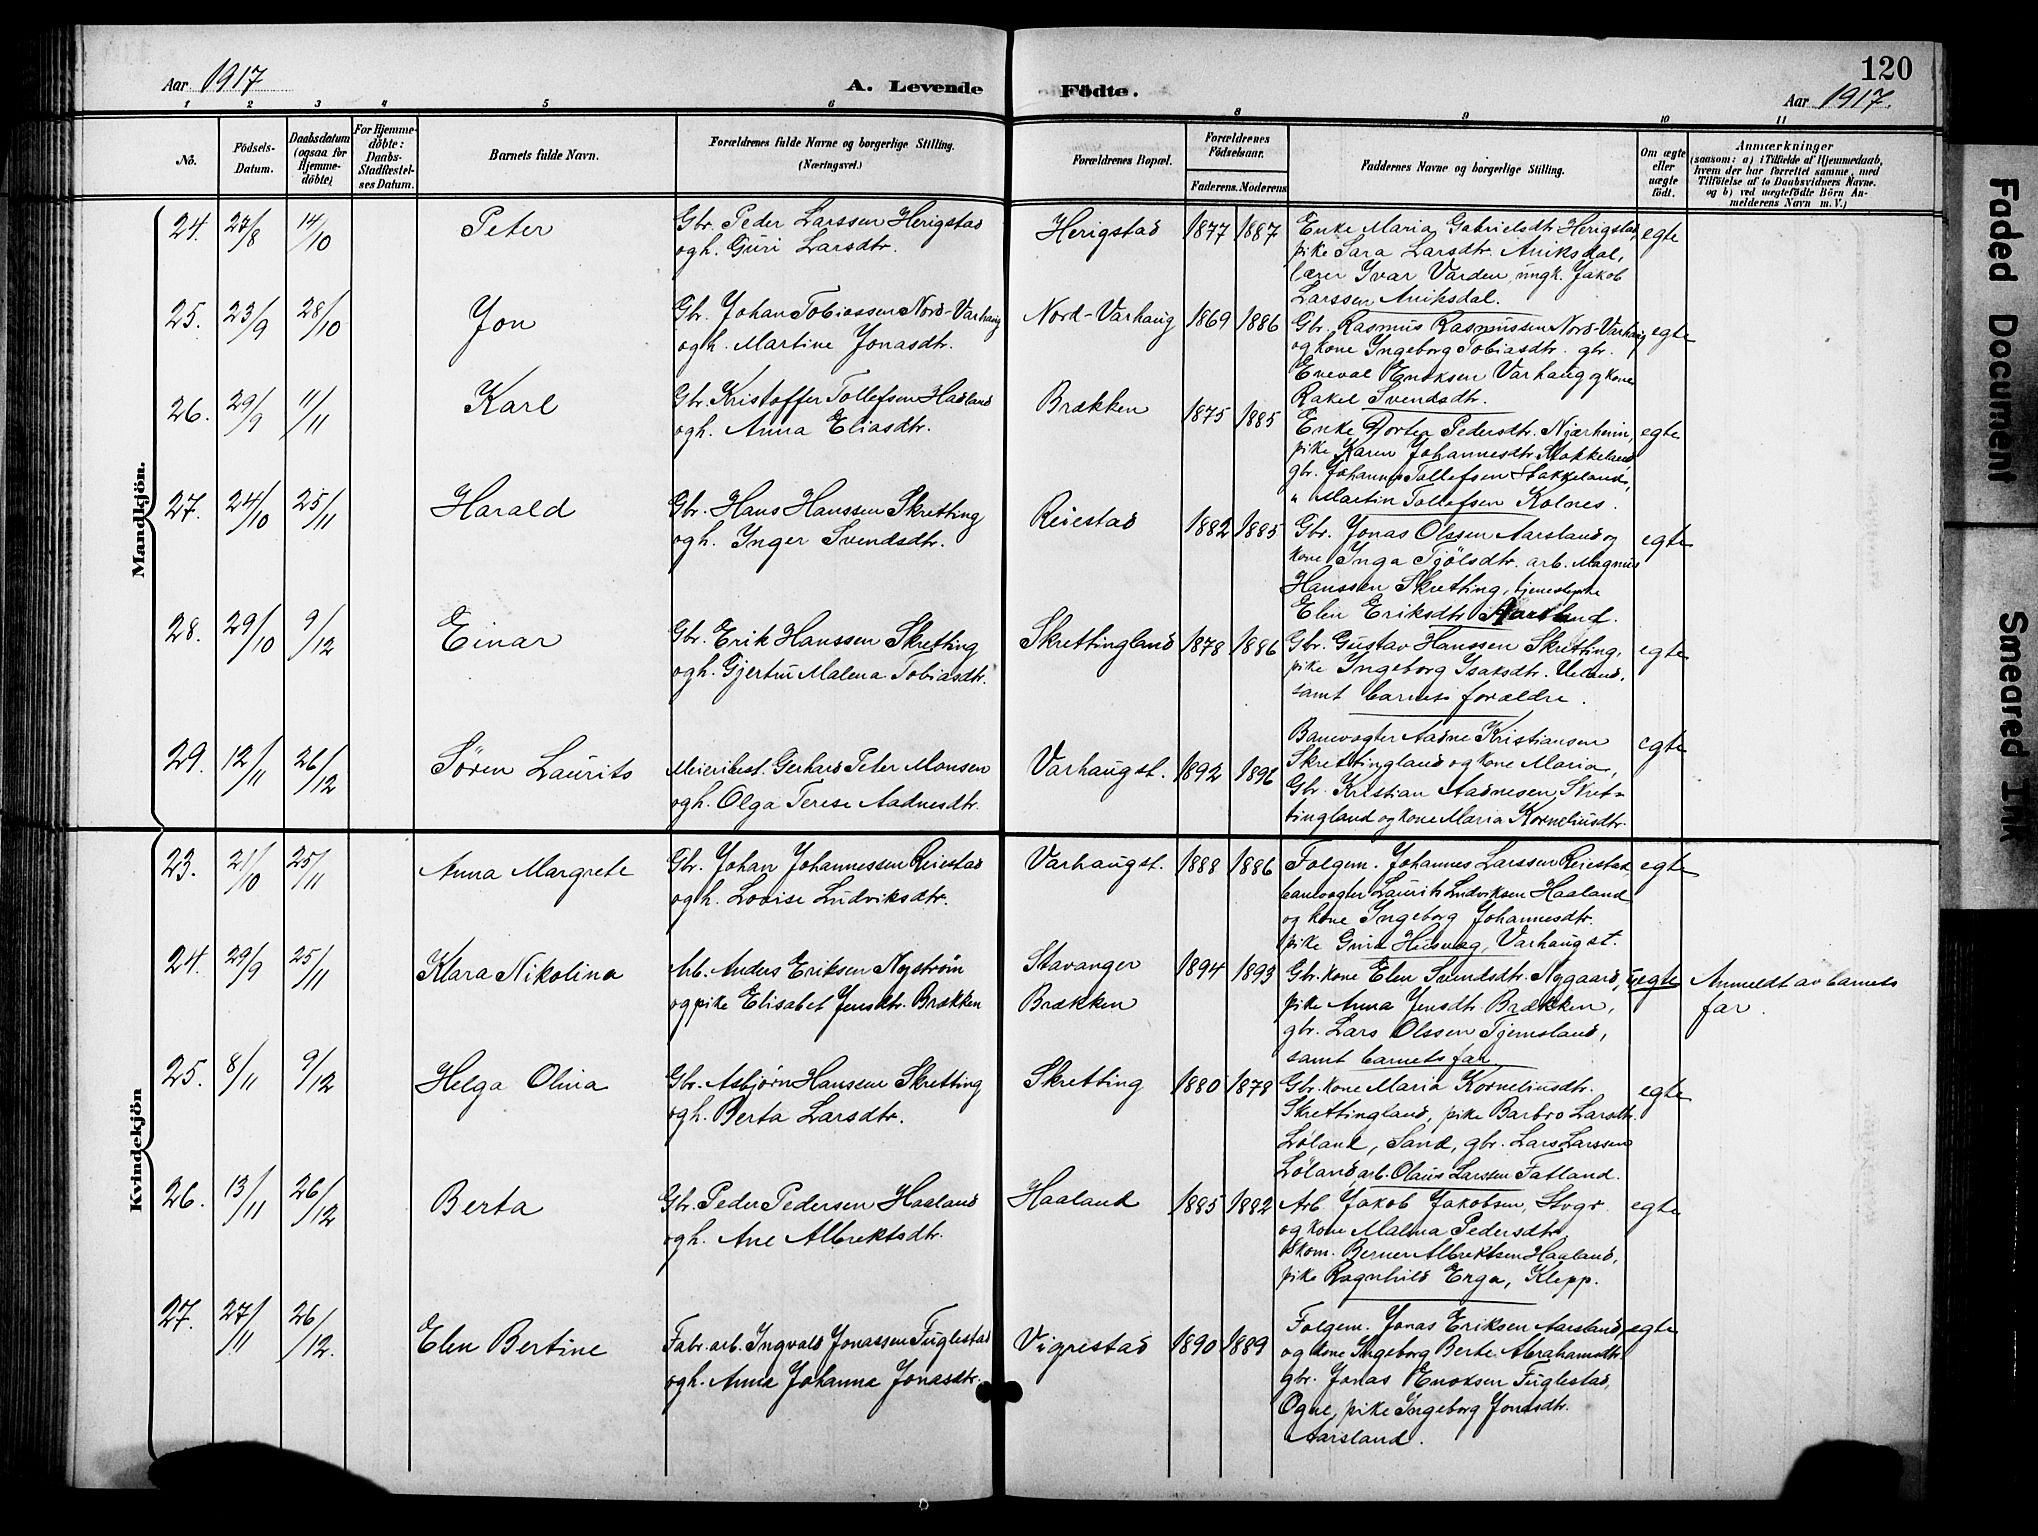 120
Aar 1917 A. Levende Födte. Aar 1917.
1 2 3 4 5 6 8 9 10 11
No.
Födsels-Datum.
Daabsdatum (ogsaa for Hjemme-döbte)
For Hjemme-döbte: Daabs-Stadfæstel-ses Datum.
Barnets fulde Navn.
Forældrenes fulde Navne og borgerlige Stilling. (Næringsvei.)
Forældrenes Bopæl.
Forældrenes Födselsaar.
Faderens. Moderens
Faddernes Navne og borgerlige Stilling.
Om ægte eller uægte födt.
Anmærkninger
(saasom: a) i Tilfælde af Hjemmedaab,
hvem der har forrettet samme, med
Tilföielse af to Daabsvidners Navne.
og b) ved uægtefödte Börn An-
melderens Navn m. V.)
Mandkjön.
24. 27/8 14/10 Peter
Gbr. Peder Larssen Herigstad
og h. Guri Larsdtr.
Herigstad 1877 1887
Enke Maria Gabrielsdtr Herigstad,
pike Sara Larsdtr. Aniksdal,
lærer Ivar Varden, ungk. Jakob
Larssen Aniksdal.
egte
25. 23/9 28/10 Jon
Gbr. Johan Tobiassen Nord-Varhaug
og h. Martine Jonasdtr.
Nord-Varhaug 1869 1886
Gbr. Rasmus Rasmussen Nord-Varhaug
og kone Ingeborg Tobiasdtr. gbr.
Eneval Enoksen Varhaug og kone
Rakel Svendsdtr.
egte
26. 29/9 11/11 Karl
Gbr. Kristoffer Tollefsen Haaland
og h. Anna Eliasdtr.
Brækken 1875 1885
Enke Dortea Pedersdtr. Njærheim,
pike Karen Johannesdtr Stokkeland
gbr. Johannes Tollefsen Stokkeland,
" Martin Tollefsen Kolnes.
egte
27. 24/10 25/11 Harald
Gbr. Hans Hanssen Skretting
og h. Inger Svendsdtr.
Reiestad 1882 1885
Gbr. Jonas Olssen Aarsland og
kone Inga Tjølsdtr. arb. Magnus
Hanssen Skretting, tjenestepike
Elen Eriksdtr Aarsland.
egte
28. 29/10 9/12 Einar
Gbr. Erik Hanssen Skretting
og h. Gjertru Malena Tobiasdtr.
Skrettingland 1878 1886
Gbr. Gustav Hanssen Skretting,
pike Ingeborg Isaksdtr. Ueland,
samt barnets forældre.
egte
29. 12/11 26/12 Søren Laurits
Meieribest. Gerhard Peter Monsen
og h. Olga Terese Aadnesdtr.
Varhaugst. 1892 1896
Banevogter Aadne Kristiansen
Skrettingland og kone Maria,
Gbr. Kristian Aadnesen Skret-
tingland og kone Maria Korneliusdtr.
egte
Kvindekjön
23. 21/10 25/11 Anna Margrete
Gbr. Johan Johannessen Reiestad
og h. Lovise Ludviksdtr.
Varhaugst. 1888 1886
Folgem. Johannes Larssen Reiestad
banevogter Laurits Ludviksen Haaland
og kone Ingeborg Johannesdtr.
pike Husvæg, Varhaugst.
egte
24. 29/9 25/11 Klara Nikolina
Arb. Anders Eriksen Nystrøm
og pike Elisabet Jensdtr. Brækken
Stavanger
Brækken
1894 1893
Gbr. kone Elen Svendsdtr. Nygaard,
pike Anna Jensdtr. Brækken,
gbr. Lars Olssen Tjemsland,
samt barnets far
uegte
Anmeldt av barnets
far.
25. 8/11 9/12 Helga Olina
Gbr. Asbjørn Hanssen Skretting
og h. Berta Larsdtr.
Skretting 1880 1878
Gbr. kone Maria Korneliusdtr.
Skrettingland, pike Barbro Larsdtr.
Løland, Sand, gbr. Lars Larssen
Løland, arb. Olaus Larsen Tatland.
egte
26. 13/11 26/12 Berta
Gbr. Peder Pedersen Haaland
og h. Ane Albrektsdtr.
Haaland 1885 1882
Arb. Jakob Jakobsen, Stvgr.
og kone Malina Pedersdtr.
skom. Berner Albrektsen Haaland,
pike Ragnhild Erga, Klepp.
egte
27. 27/11 26/12. Elen Bertine
Fabr. arb. Ingvald Jonassen Fuglestad
og h. Anna Johanna Jonasdtr.
Vigrestad 1890 1889
Folgem. Jonas Eriksen Aarsland
og kone Ingeborg Berte Abrahamsdtr.
gbr. Jonas Enoksen Fuglestad,
Ogne, pike Ingeborg Jonasdtr.
Aarsland.
egte
Faded Document
Smeared Ink